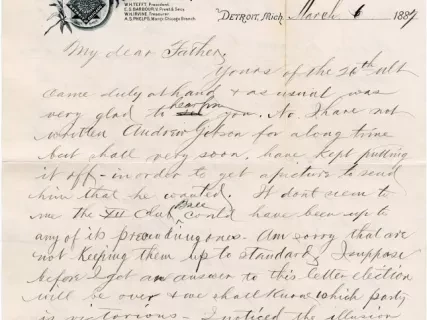 W.H. TEFFT, President.
E.S. BARBOUR, V. Prest & Secy.
W.H. IRVINE, Treasurer
A.S. PHELPS, Mangr. Chicago Branch.
DETROIT, Mich March 6 1889
My dear Father,
Yours of the 26th ult
came duly at hand & as usual was
very glad to hear from you. No, I have not
written Andrew for a long time
but shall very soon, have kept putting
it off - in order to get a picture to send
him that he wanted. It dont seem to
me the Ball could have been up to
any of its preceeding ones. Am sorry that are
not keeping them up to standard, I suppose
before I got an answer to this letter election
will be over & we shall know which party
is victorious - I noticed the illusion